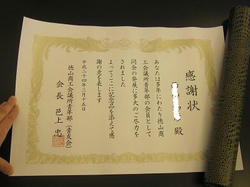 感謝状
殿
あなたは多年にわたり徳山商
工会議所青年部の会員として
同会の発展に多大のご尽力を
されました
よってここに記念品を添えて感
謝の意を表します
平成二十四年三月二十五日
徳山商工会議所青年部(愛友会)
会長 邑上 忠